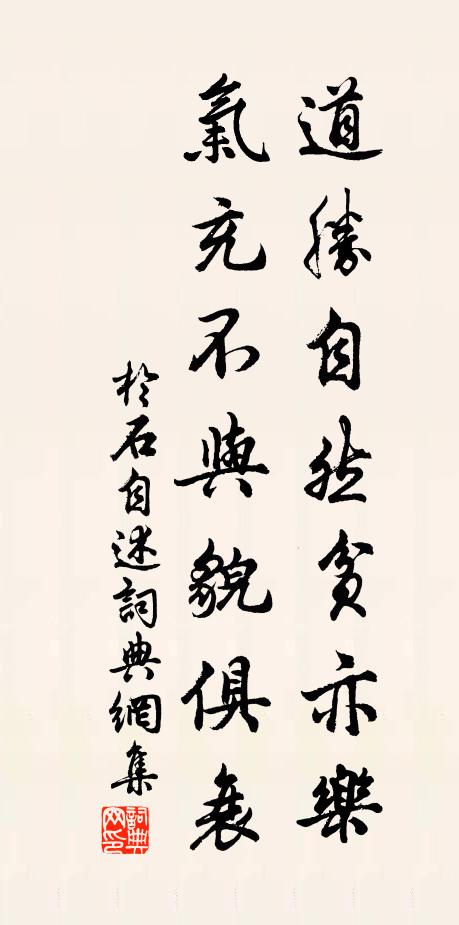 道勝自然貧亦樂
氣充不與貌俱衰
於石自述詞典網集
詞典
网印